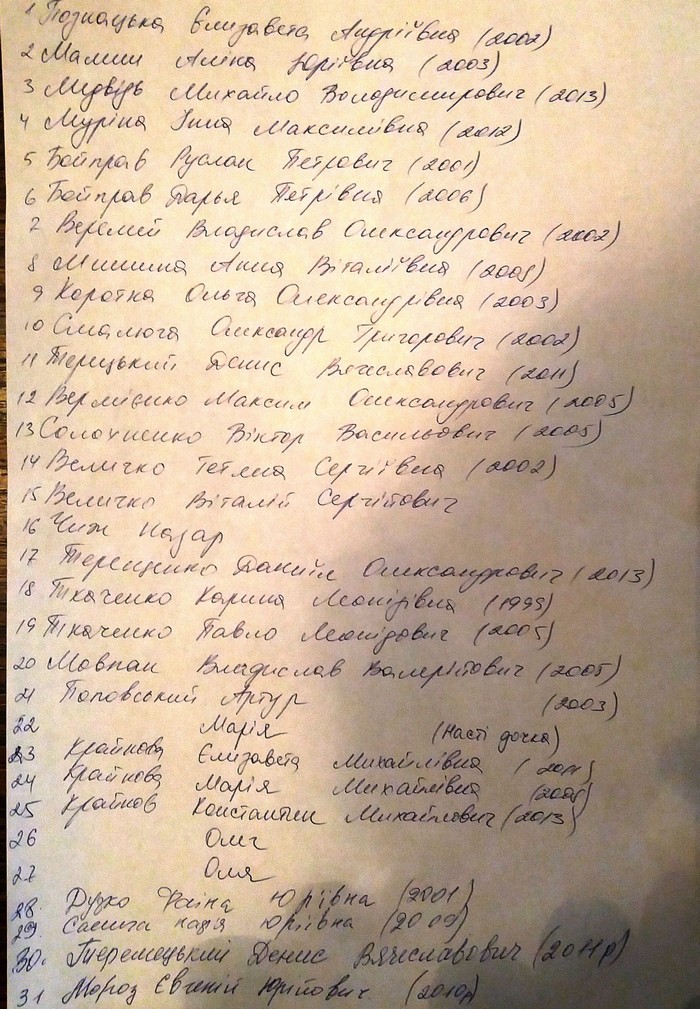 1 Познацька Єлизавета Андріївна (2002)
2 Малиш Аліна Юріївна (2003)
3 Мидвідь Михайло Володимирович (2013)
4 Муріна Інна Максимівна (2012)
5 Бойправ Руслан Петрович (2001)
6 Бойправ Дарья Петрівна (2006)
7 Веремей Владислав Олександрович (2002)
8 Анна Віталіївна
9 Коротка Ольга Олександрівна (2003)
10 Смалюга Олександр Григорович (2002)
11 Денис Вячеславович (2011)
12 Максим Олександрович (2005)
13 Солохненко Віктор Васильович (2005)
14 Величко Тетяна Сергіївна (2002)
15 Величко Віталій Сергійович
16 Чиж Назар
17 Терещенко Даниїл Олександрович (2013)
18 Ткаченко Карина Леонідівна (1995)
19 Ткаченко Павло Леонідович (2005)
20 Мовпан Владислав Валерійович (2005)
21 Поповський Артур (2003)
22 Марія (Насті дочка)
23 Крайнова Єлизавета Михайлівна (2011)
24 Крайнова Марія Михайлівна
25 Крайнов Константин Михайлович (2013)
26 Олег
27 Оля
28. Дузко Фаїна Юріївна (2001)
29. Надія Юріївна
30. Теремецький Денис Вячеславович (2011р)
31 Мороз Євгеній Юрійович (2010р)